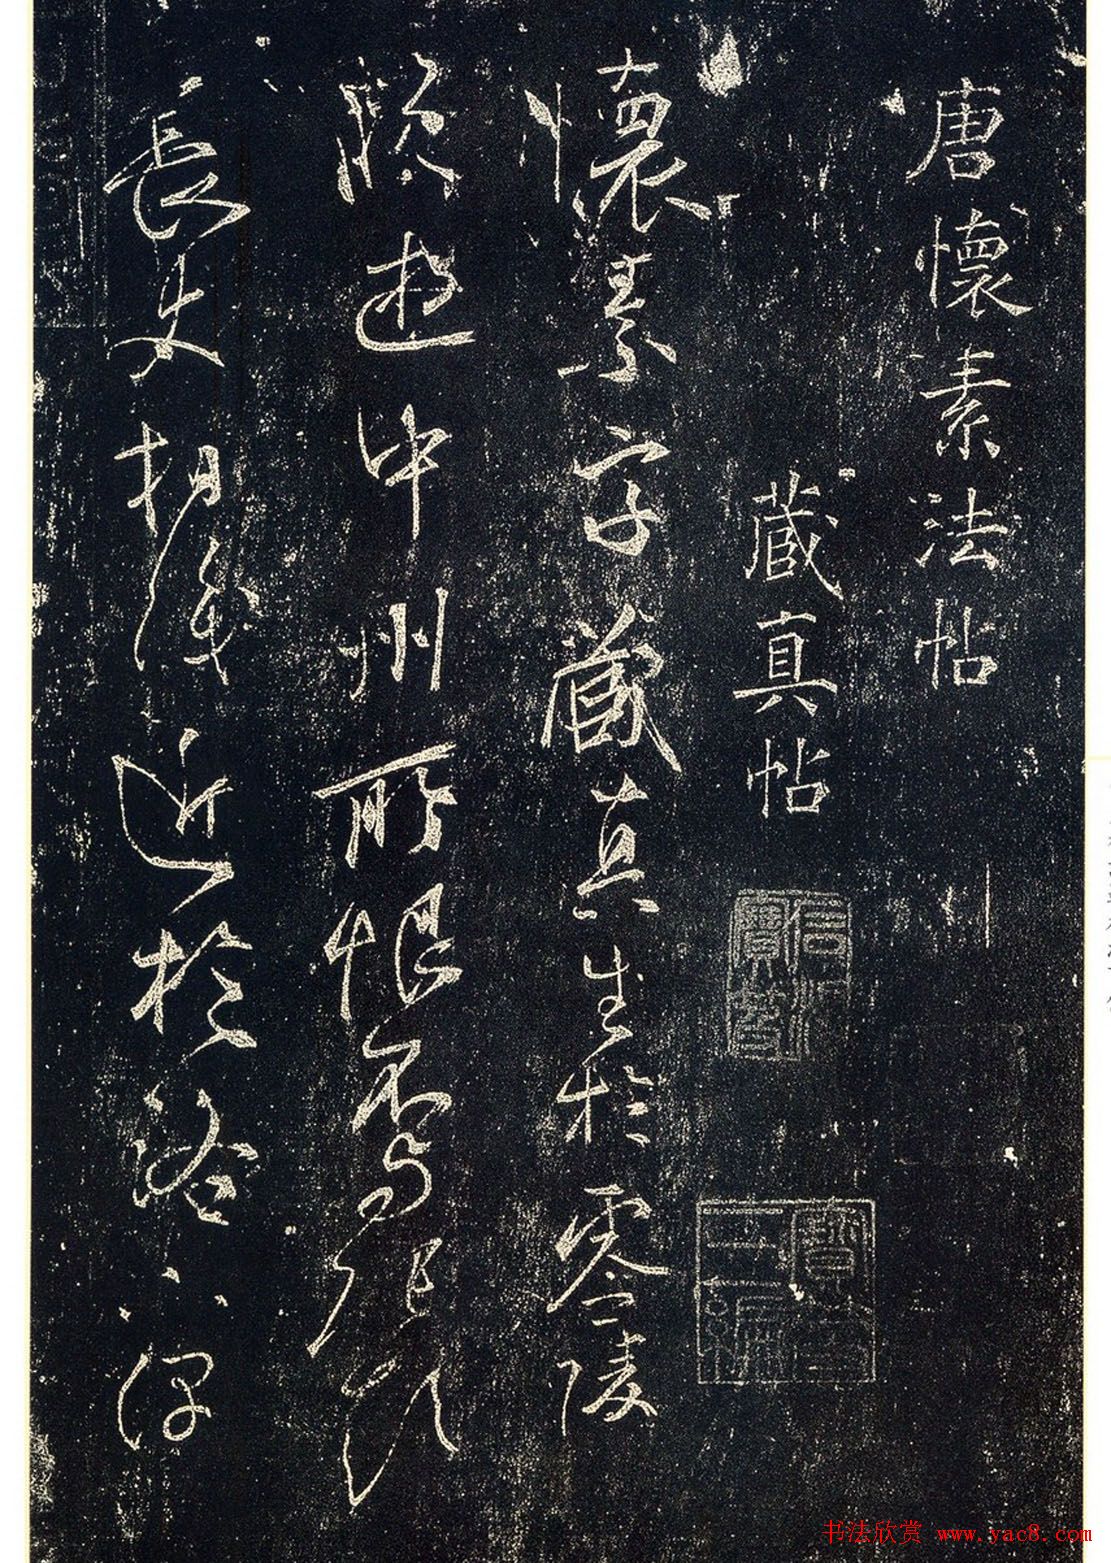 唐懷素法帖
藏真帖
懷素字藏真生於零陵
晚遊中州所恨不與張顛
長史相識近於洛下得
书法欣赏 www.yac8.com